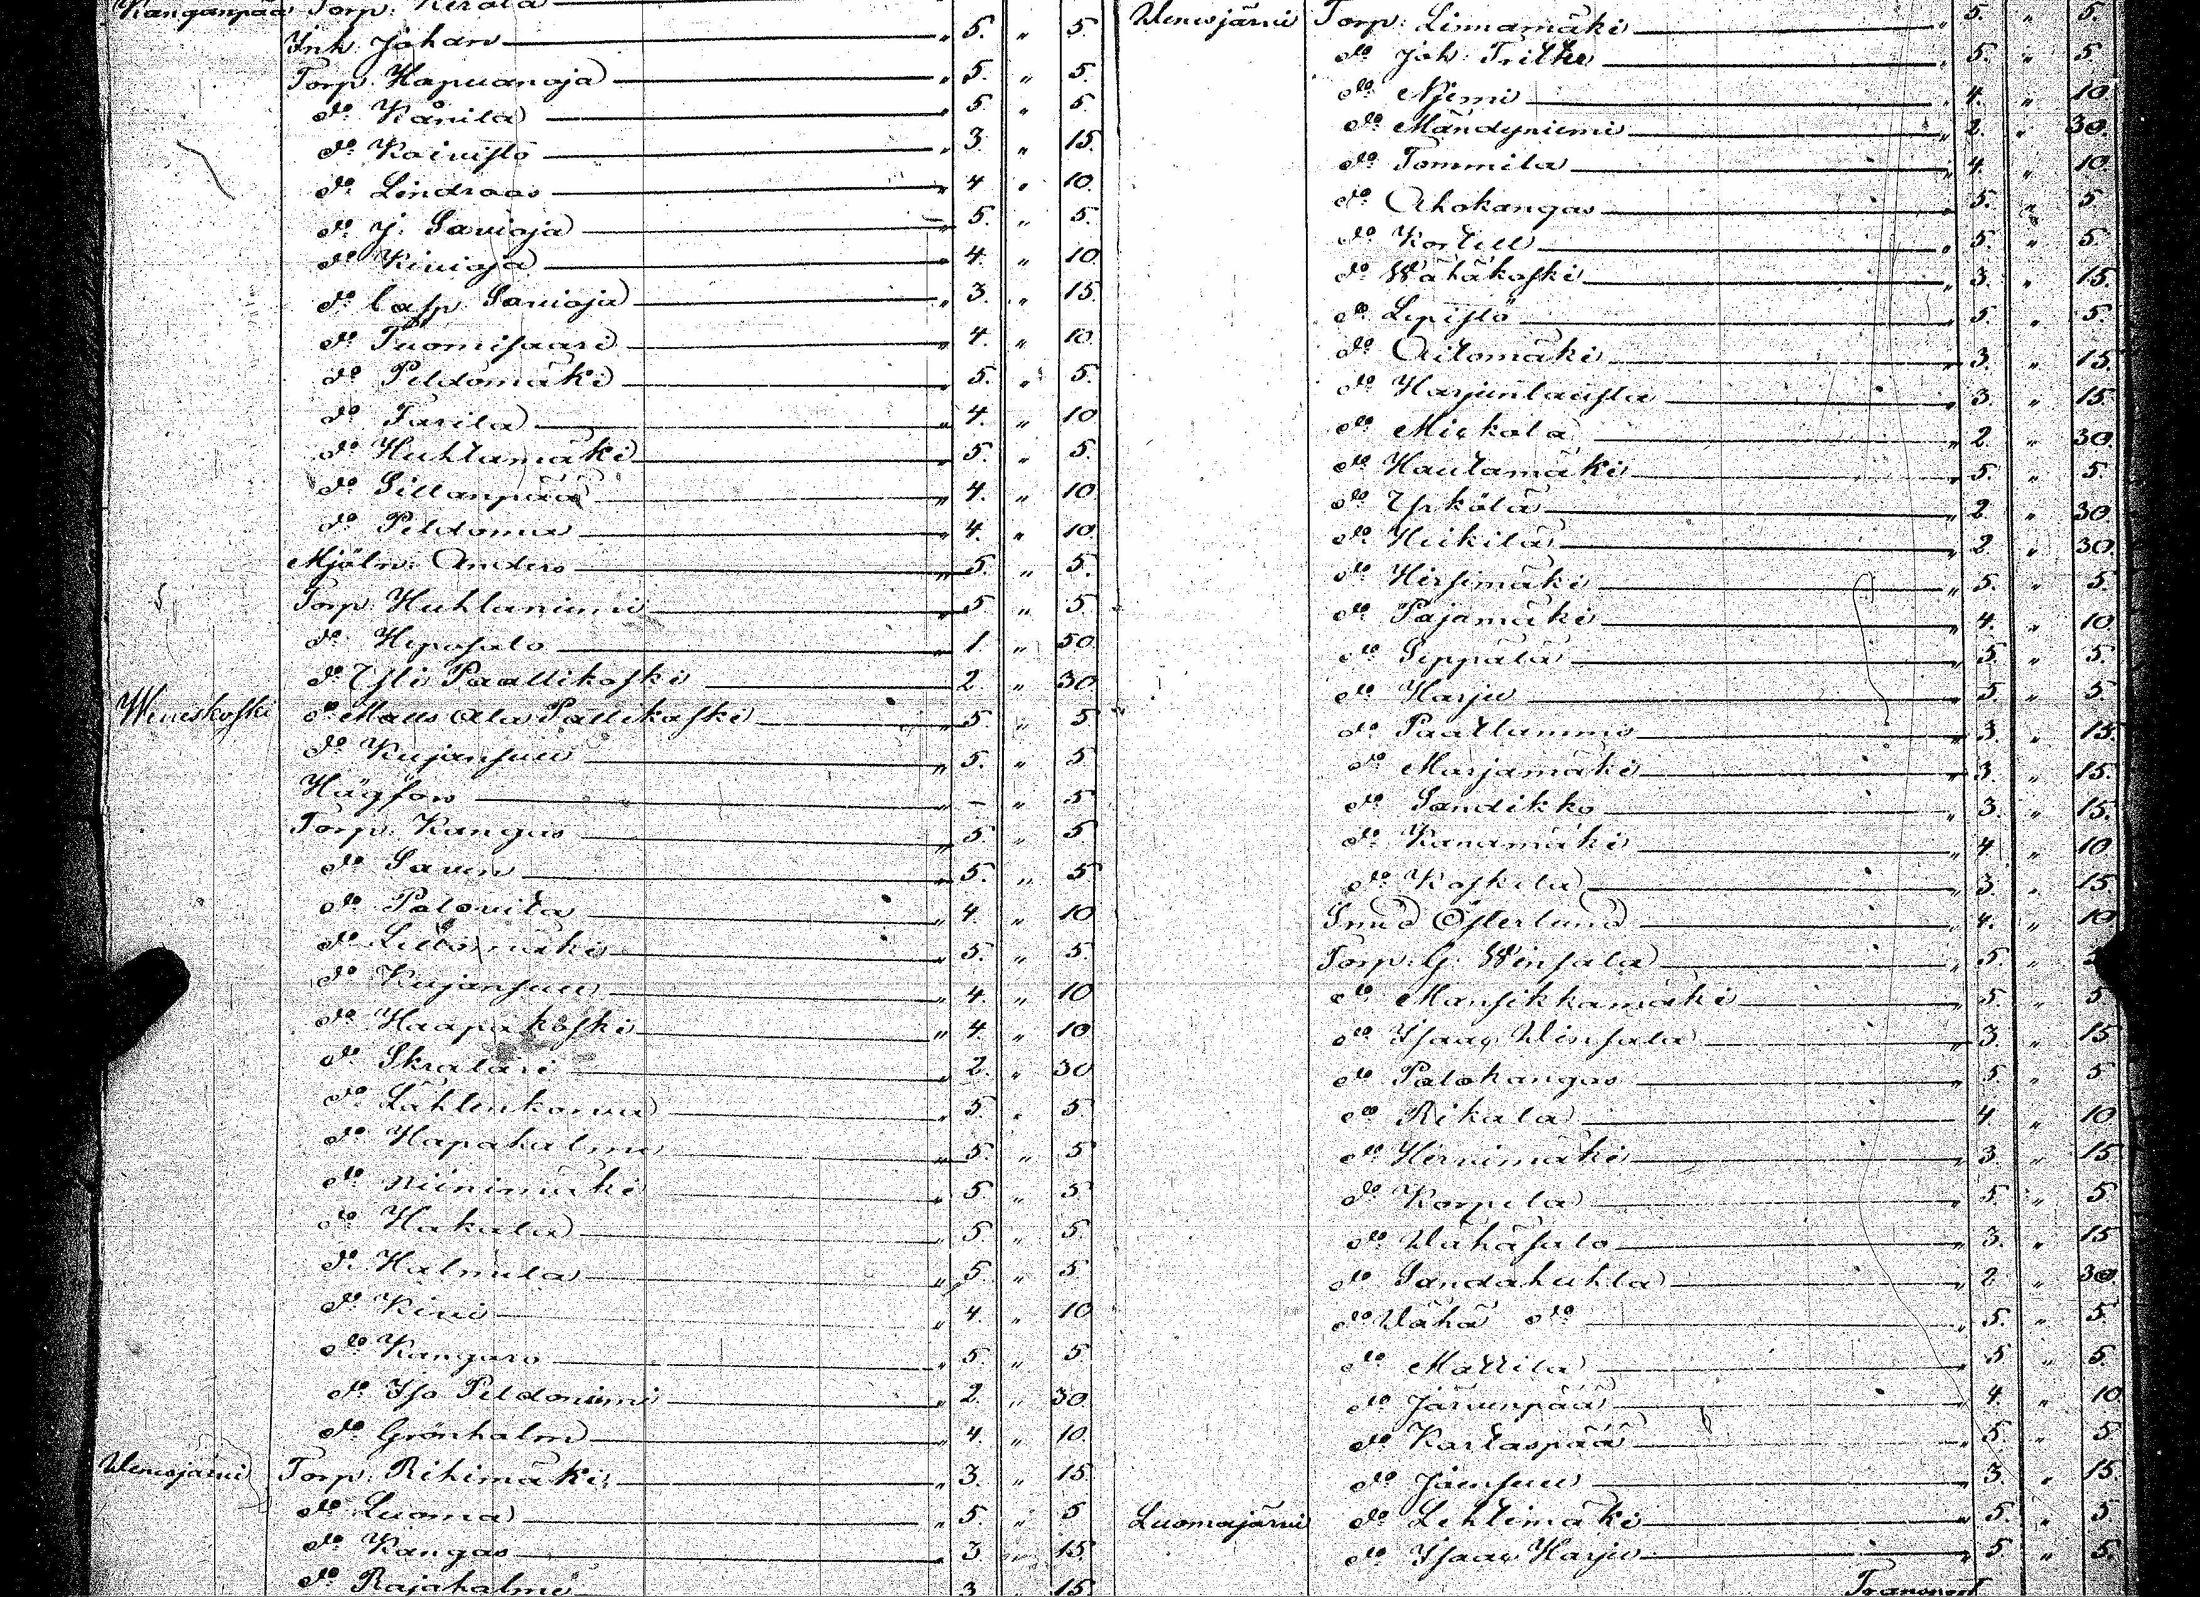 Kanganpää Torp: Kerola
Inh. Johan " 5. " 5.
Torp. Hapuanoja " 5. " 5.
do Känilä " 5. " 5.
do Koivisto " 3. " 15.
do Lindroos " 4 " 10.
do J. Savioja 5. " 5.
do Kivioja 4. " 10.
do Casp. Savioja " 3. " 15.
do Tuomisaari " 4. " 10.
do Peldomäki " 5. " 5.
do Tarila " 4. " 10
do Huhtamäki " 5. " 5.
do Sillanpää " 4. " 10
do Peldoma " 4. " 10
Mjöln: Anders " 5. " 5.
Torp. Huhtaniemi " 5 " 5
do Heposalo " 1 " 50.
do Ylli Paallikoski 2. " 30.
Weneskoski do Matts Ala Pallikoski " 5 " 5
do Kujansuu " 5. " 5
Hägfors " - " 5
Torp: Kangas " 5. " 5
do Saren " 5. " 5
do Palovita " 4. " 10
do Lillomäki " 5. " 5.
do Kujansuu " 4. " 10
do Haapakoski " 4. " 10
do Skratari " 2. " 30
do Lähtenkorva " 5. " 5
do Hapahalme " 5. " 5
do Niinimäki " 5 " 5
do Hakala " 5 " 5.
do Halmela " 5 " 5
do Kivi " 4. " 10
do Kangaro " 5. " 5.
do Iso Peldoniemi " 2. " 30.
do Grönholm " 4. " 10.
Wenesjärvi Torp: Rihimäki " 3. " 15.
do Luoma " 5. " 5
do Kangas " 3 " 15.
do Rajahalme 3 " 15.
Wenesjärvi Torp: Linnamäki " 5. " 5.
do Joh: Trilke " 5. " 5
do Njemi " 4. " 10.
do Mändyniemi " 2. " 30.
do Tommila " 4. " 10.
do Ahokangas " 5. " 5
do Kortell " 5. " 5.
do Wähäkoski " 3. " 15.
do Lepistö " 5. " 5.
do Aitomäki " 3. " 15.
do Harjunlausta " 3. " 15.
do Mickala " 2 " 30.
do Hautamäki " 5. " 5.
do Yrkölä " 2 " 30.
do Heikilä " 2. " 30.
do Hirsimäki " 5. " 5.
do Pajamäki " 4. " 10
do Seppälä " 5. " 5.
do Harju " 5. " 5
do Paatlammi " 3. " 15.
do Marjamäki " 3. " 15.
do Sandikko " 3. " 15.
do Kanamäki " 4. " 10
do Koskela " 3. " 15.
Smed Österlund " 4. " 10
Torp: G: Winsala " 5. "
do Mansikkamäki " 5. " 5
do Isaac Winsala " 3. " 15
do Palokangas " 5. " 5
do Rikala 4. " 10
do Hirvimäki " 3. " 15
do Korpela " 5 " 5
do Wähäsalo " 3. " 15
do Sandahuhta " 2 " 30.
do Wähä do " 5. " 5.
do Mattila " 5 " 5.
do Järvenpää " 4. " 10
do Kartaspää " 5. " 5
do Jäensuu " 3. " 15.
Luomajärvi do Lehtimäki " 5. " 5.
do Isaac Harju " 5. " 5.
Transport